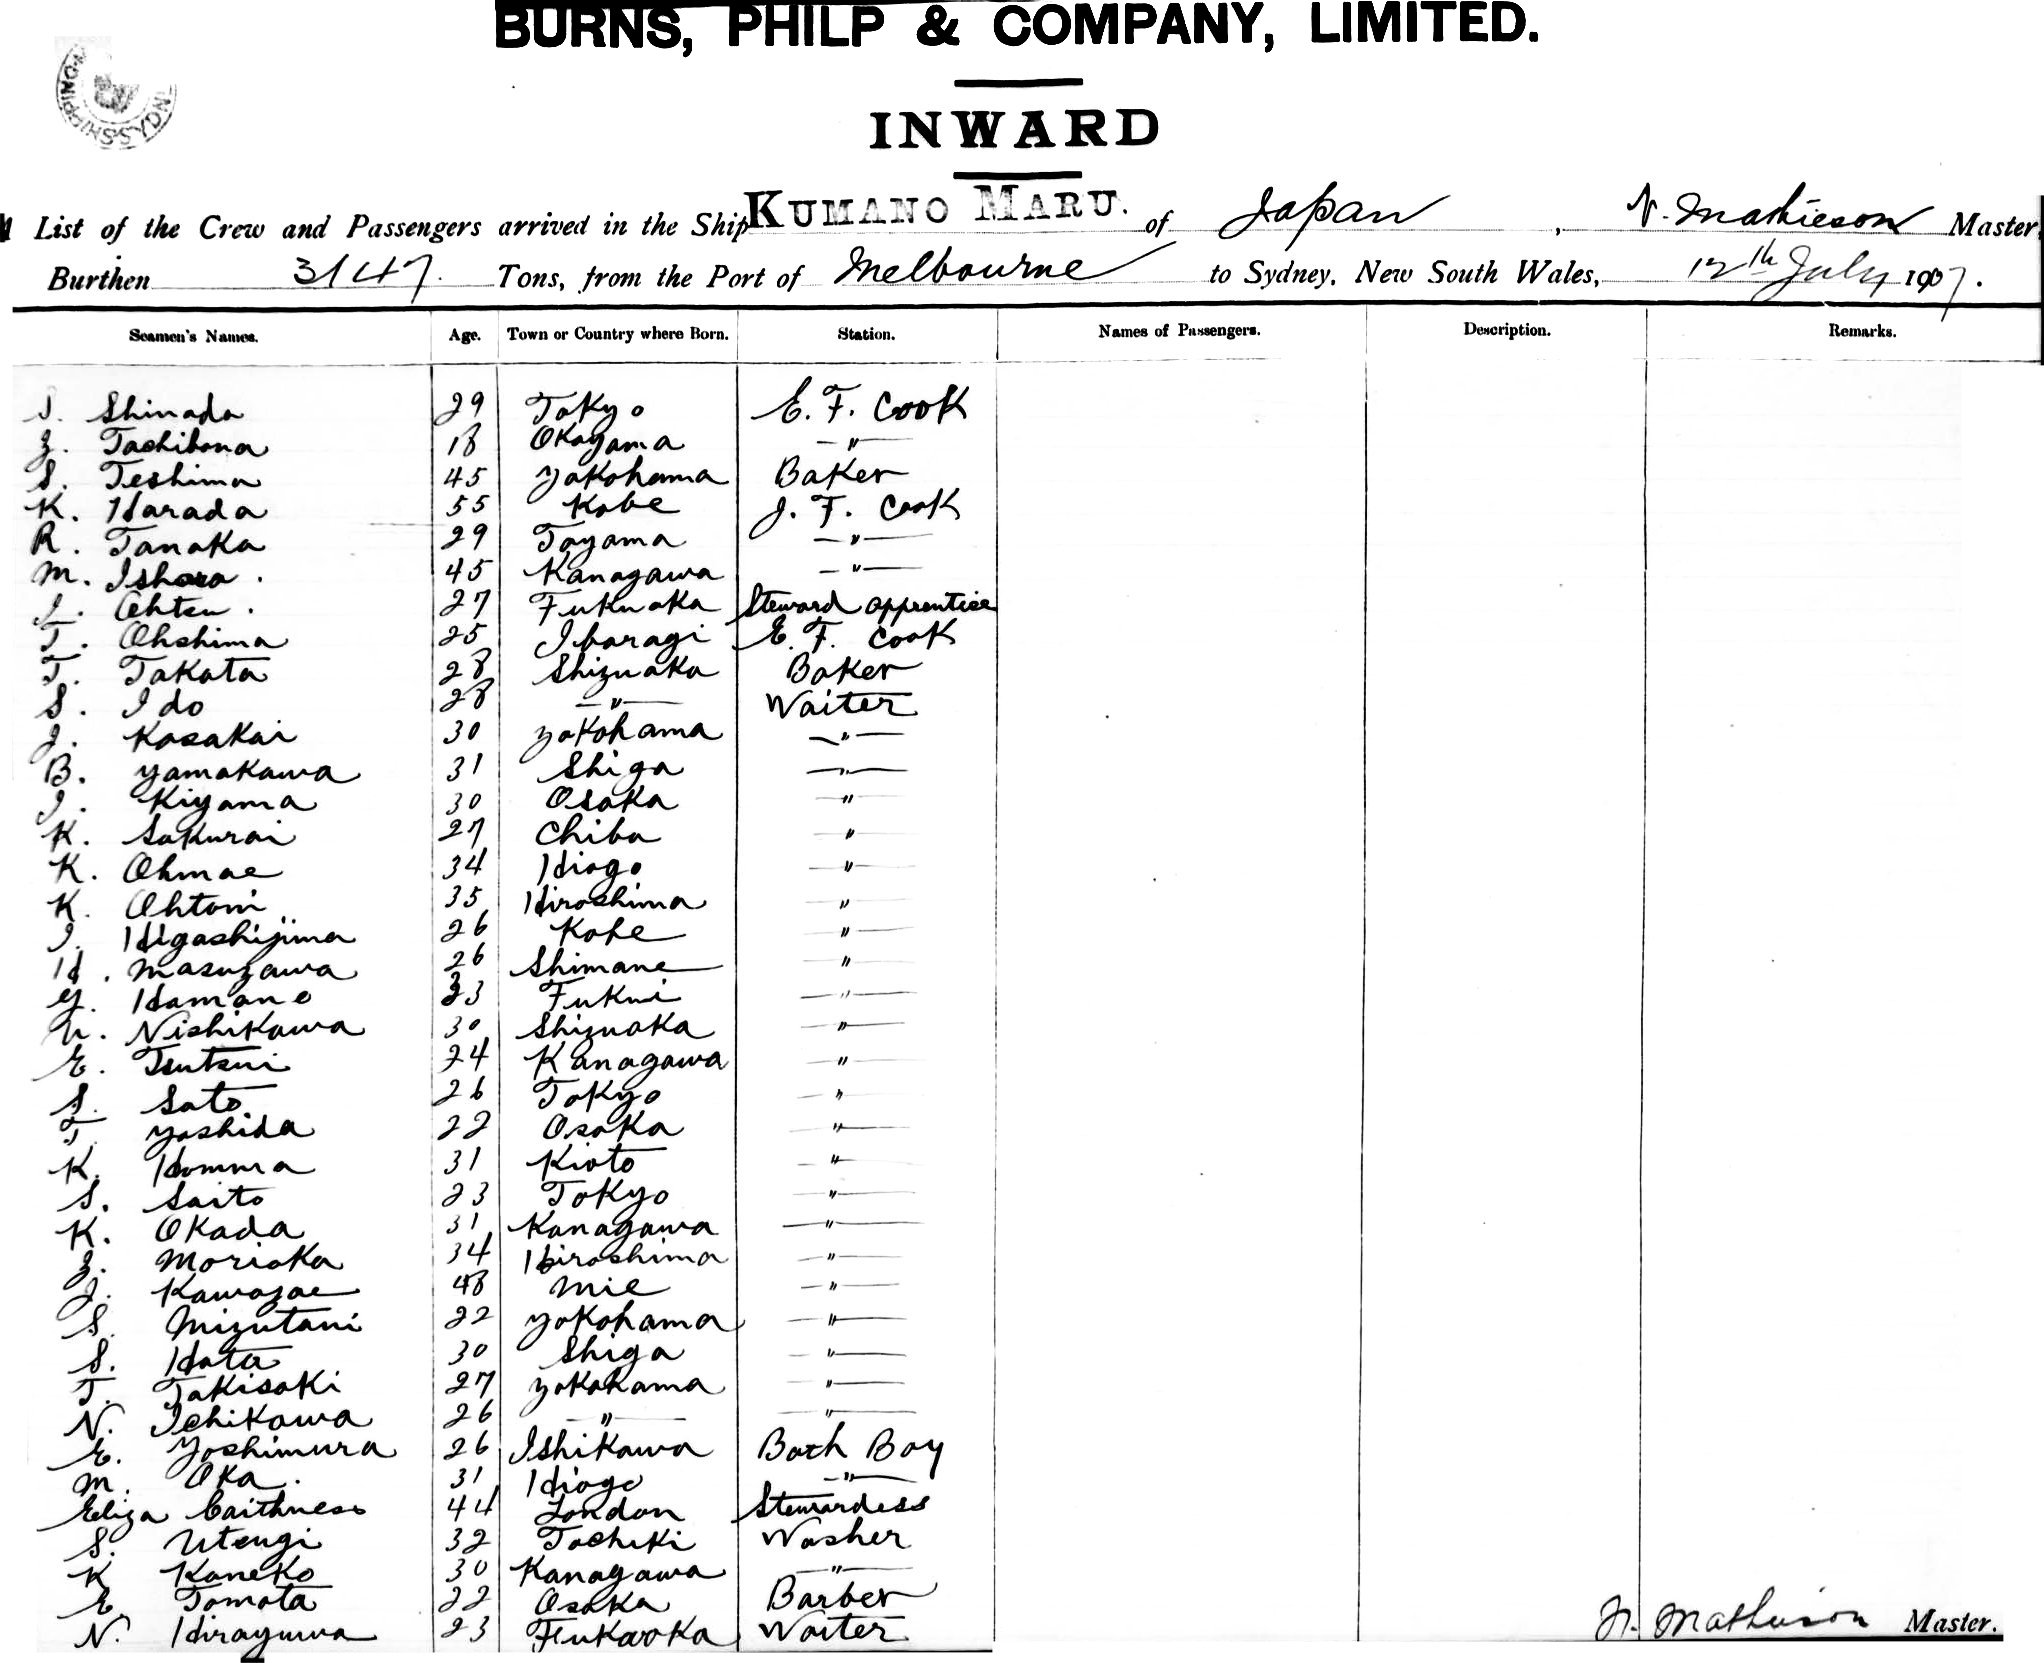 BURNS, PHILP & COMPANY, LIMITED.
INWARD
List of the Crew and Passengers arrived in the Ship KUMANO MARU. of Japan, N. Mathieson Master,
Burthen 3147. Tons, from the Port of Melbourne to Sydney, New South Wales, 12th July 1907.
Seamen's Names. Age. Town or Country where Born. Station. Names of Passengers. Description. Remarks.
Shinada 29 Tokyo E. F. Cook
Z. Tachibana 18 Okayama — " —
S. Teshima 45 Yokohama Baker
K. Harada 55 Kobe J. F. Cook
R. Tanaka 29 Toyama — " —
M. 45 Kanagawa — " —
I. Ohtsu. 27 Fukuoka Steward apprentice
T. Ohshima 25 Ibaragi E. F. Cook
T. Takata 28 Shizuoka Baker
S. Ido 28 — " — Waiter
J. Kosakai 30 Yokohama — " —
B. Yamakawa 31 Shiga — " —
I. Kiyama 30 Osaka — " —
K. Sakurai 27 Chiba — " —
K. Ohmae 34 Hiogo — " —
K. Ohtani 35 Hiroshima — " —
I. Higashijima 26 Kobe — " —
H. Masuzawa 26 Shimane — " —
Y. Hamano 23 Fukui — " —
U. Nishikawa 30 Shizuoka — " —
E. Tsutsui 24 Kanagawa — " —
S. Sato 26 Tokyo — " —
T. Yoshida 22 Osaka — " —
K. Homma 31 Kioto — " —
S. Saito 23 Tokyo — " —
K. Okada 31 Kanagawa — " —
Z. Morioka 34 Hiroshima — " —
J. Kawazoe 48 Mie — " —
S. Mizutani 22 Yokohama — " —
S. Hata 30 Shiga — " —
T. Takisaki 27 Yokohama — " —
N. Ichikawa 26 — " — — " —
E. Yoshimura 26 Ishikawa Bath Boy
M. Oka. 31 Hiogo — " —
Eliza Caithness 44 London Stewardess
S. Utsugi 32 Tochiki Washer
K Kaneko 30 Kanagawa — " —
E Tomota 22 Osaka Barber
N. Hirayama 23 Fukuoka Waiter
N. Mathieson Master.